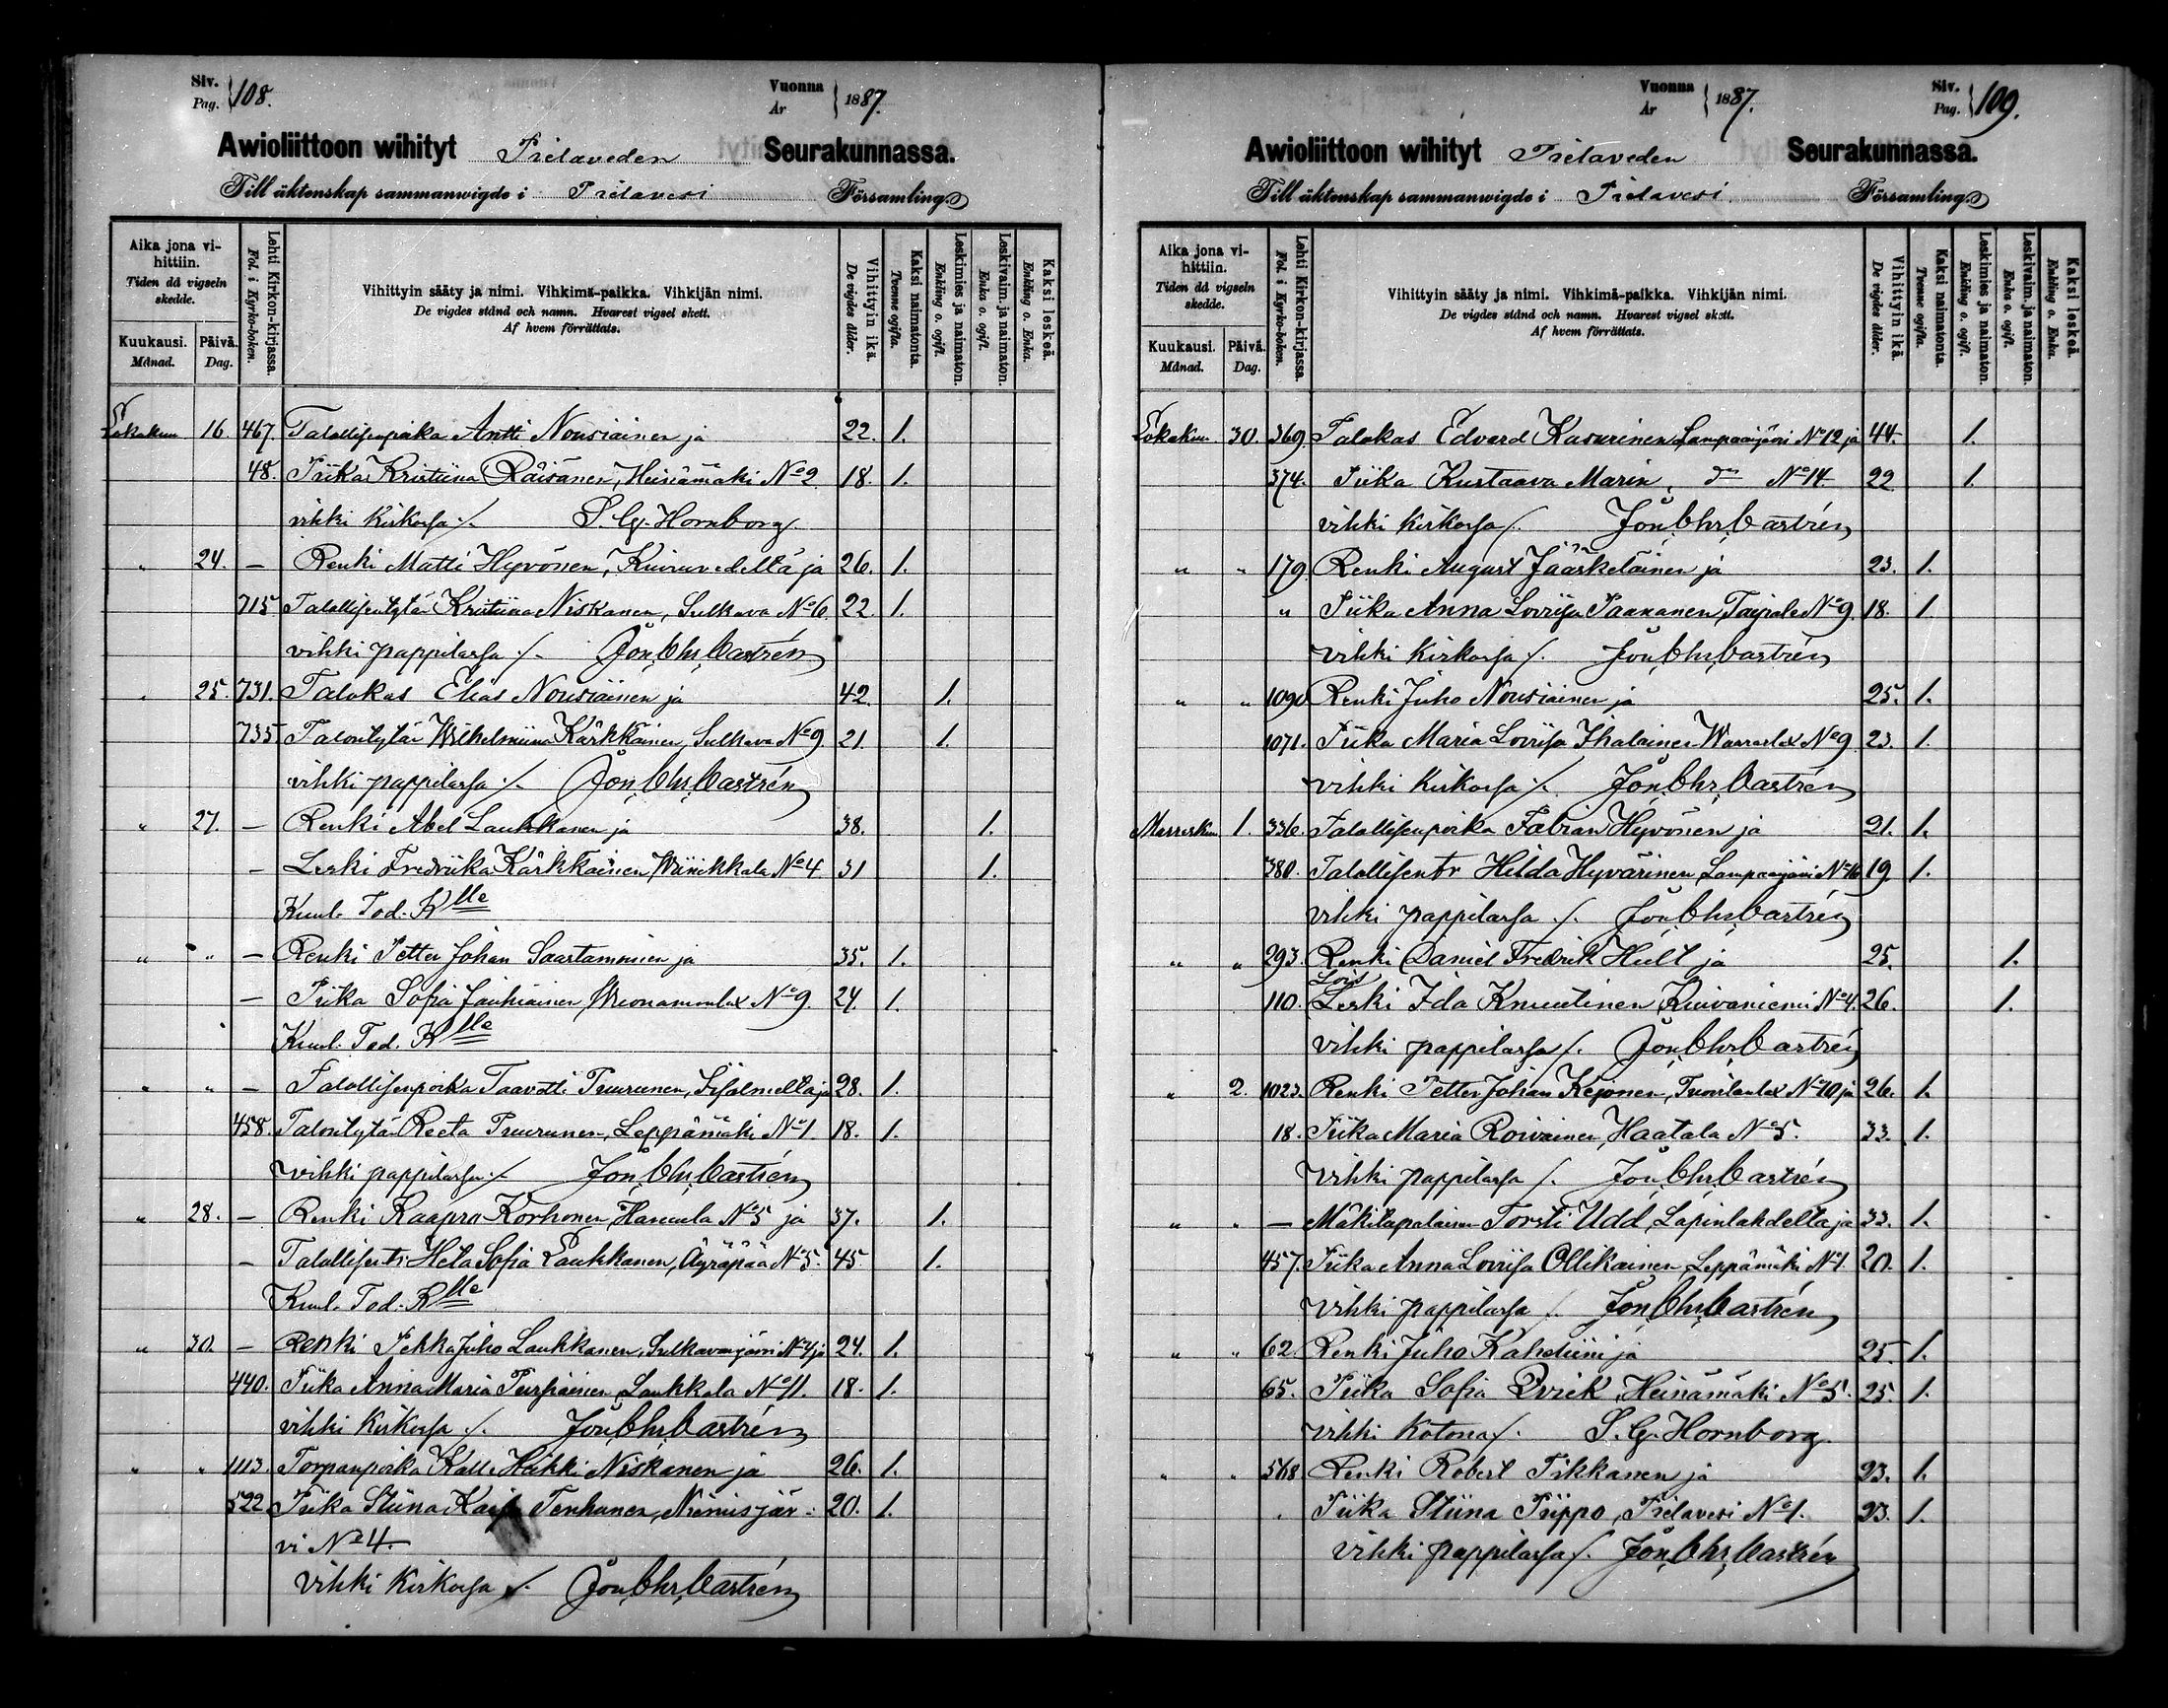 Siv.
Pag. 108.
Vuonna
År 1887.
Awioliittoon wihityt Pielaveden Seurakunnassa.
Till äktenskap sammanwigde i Pielavesi Församling.
Aika jona vihittiin.
Tiden då vigseln skedde.
Kuukausi. Månad.
Päivä. Dag.
Lehti Kirkon-kirjassa.
Fol. i Kyrko-boken.
Vihittyin sääty ja nimi. Vihkimä-paikka. Vihkijän nimi.
De vigdes stånd och namn. Hvarest vigsel skett.
Af hvem förrättats.
Vihittyin ikä.
De vigdes ålder.
Kaksi naimatonta.
Tvenne ogifta.
Leskimies ja naimaton.
Enkling o. ogift.
Leskivaim. ja naimaton.
Enka o. ogift.
Kaksi leskeä.
Enkling o. Enka.
Lokakuu 16. 467. Talollisenpoika Antti Nousiainen ja 22. 1.
48. Piika Kristiina Räisänen, Heinämäki No 2 18. 1.
vihki kirkossa ./. S. G. Hornborg
" 24. — Renki Matti Hyvönen, Kiuruvedeltä ja 26. 1.
715 Talollisentytär Kristiina Niskanen, Sulkava No 6. 22. 1.
vihki pappilassa ./. Jon. Chr. Castrén
" 25. 731. Talokas Elias Nousiainen ja 42. 1.
735. Talontytär Wilhelmiina Kärkkäinen, Sulkava No 9. 21. 1.
vihki pappilassa ./. Jon. Chr. Castrén
" 27. — Renki Abel Laukkanen ja 38. 1.
— Leski Fredriika Kärkkäinen, Wänikkala No 4 31 1.
Kuul. Tod. Klle
" " — Renki Petter Johan Saastamoinen ja 35. 1.
— Piika Sofia Jauhiainen, No 9. 24. 1.
Kuul. Tod. Klle
" " — Talollisenpoika Taavetti Pruurunen, Iisalmelta ja 28. 1.
458. Talontytär Reeta Pruurunen, Leppämäki No 1. 18. 1.
vihki pappilassa ./. Jon. Chr. Castrén
" 28. — Renki Kaapro Korhonen, Hamula No 5 ja 37. 1.
— Talollisentr Heta Sofia Laukkanen, Äyräpää No 5. 45 1.
Kuul. Tod. Klle
" 30. — Renki Pekka Juho Laukkanen, Sulkavanjärvi No 4 ja 24. 1.
440. Piika Anna Maria Purhainen, Laukkala No 11. 18. 1.
vihki kirkossa ./. Jon. Chr. Castrén
" " 1113. Torpanpoika Kalle Heikki Niskanen ja 26. 1.
522 Piika Stiina Kaisa Tenhunen, Niemisjär- 20. 1.
vi No 4.
vihki kirkossa ./. Jon. Chr. Castrén
Vuonna
År 1887.
Siv.
Pag. 109.
Awioliittoon wihityt Pielaveden Seurakunnassa.
Till äktenskap sammanwigde i Pielavesi Församling.
Aika jona vihittiin.
Tiden då vigseln skedde.
Kuukausi. Månad.
Päivä. Dag.
Lehti Kirkon-kirjassa.
Fol. i Kyrko-boken.
Vihittyin sääty ja nimi. Vihkimä-paikka. Vihkijän nimi.
De vigdes stånd och namn. Hvarest vigsel skett.
Af hvem förrättats.
Vihittyin ikä.
De vigdes ålder.
Kaksi naimatonta.
Tvenne ogifta.
Leskimies ja naimaton.
Enkling o. ogift.
Leskivaim. ja naimaton.
Enka o. ogift.
Kaksi leskeä.
Enkling o. Enka.
Lokakuu 30. 369. Talokas Edvard Kasurinen, Lampaanjärvi No 12 ja 44. 1.
374. Piika Kustaava Marin, do No 14 22 1.
vihki kirkossa ./. Jon. Chr. Castrén
" " 179. Renki August Jääskeläinen ja 23. 1.
" Piika Anna Loviisa Paananen, Taipale No 9. 18. 1.
vihki kirkossa ./. Jon. Chr. Castrén
" " 1090 Renki Juho Nousiainen ja 25. 1.
1071. Piika Maria Loviisa Ihalainen No 9 23. 1.
vihki kirkossa ./. Jon. Chr. Castrén
Marraskuu 1. 336. Talollisenpoika Fabian Hyvönen ja 21. 1.
380. Talollisentr Hilda Hyvärinen, Lampaanjärvi No 16 19. 1.
vihki pappilassa ./. Jon. Chr. Castrén
" " 293. Renki Daniel Fredrik Hult ja 25. 1.
Lois
110. Leski Ida Knuutinen, Kuivaniemi No 4. 26. 1.
vihki pappilassa ./. Jon. Chr. Castrén
" 2. 1023. Renki Petter Johan Kejonen, No 10 ja 26. 1.
18. Piika Maria Roivainen, Haatala No 5. 33. 1.
vihki pappilassa ./. Jon. Chr. Castrén
" " — Mäkitupalainen Torsti Udd, Lapinlahdelta ja 33. 1.
457. Piika Anna Loviisa Ollikainen, Leppämäki No 1. 20. 1.
vihki pappilassa ./. Jon. Chr. Castrén
" " 62. Renki Juho Kaheliini ja 25. 1.
65. Piika Sofia Qvick, Heinämäki No 5. 25. 1.
vihki kotona ./. S. G. Hornborg.
" " 568 Renki Robert Tikkanen ja 23. 1.
" Piika Stiina Piippo, Pielavesi No 1. 23. 1.
vihki pappilassa ./. Jon. Chr. Castrén